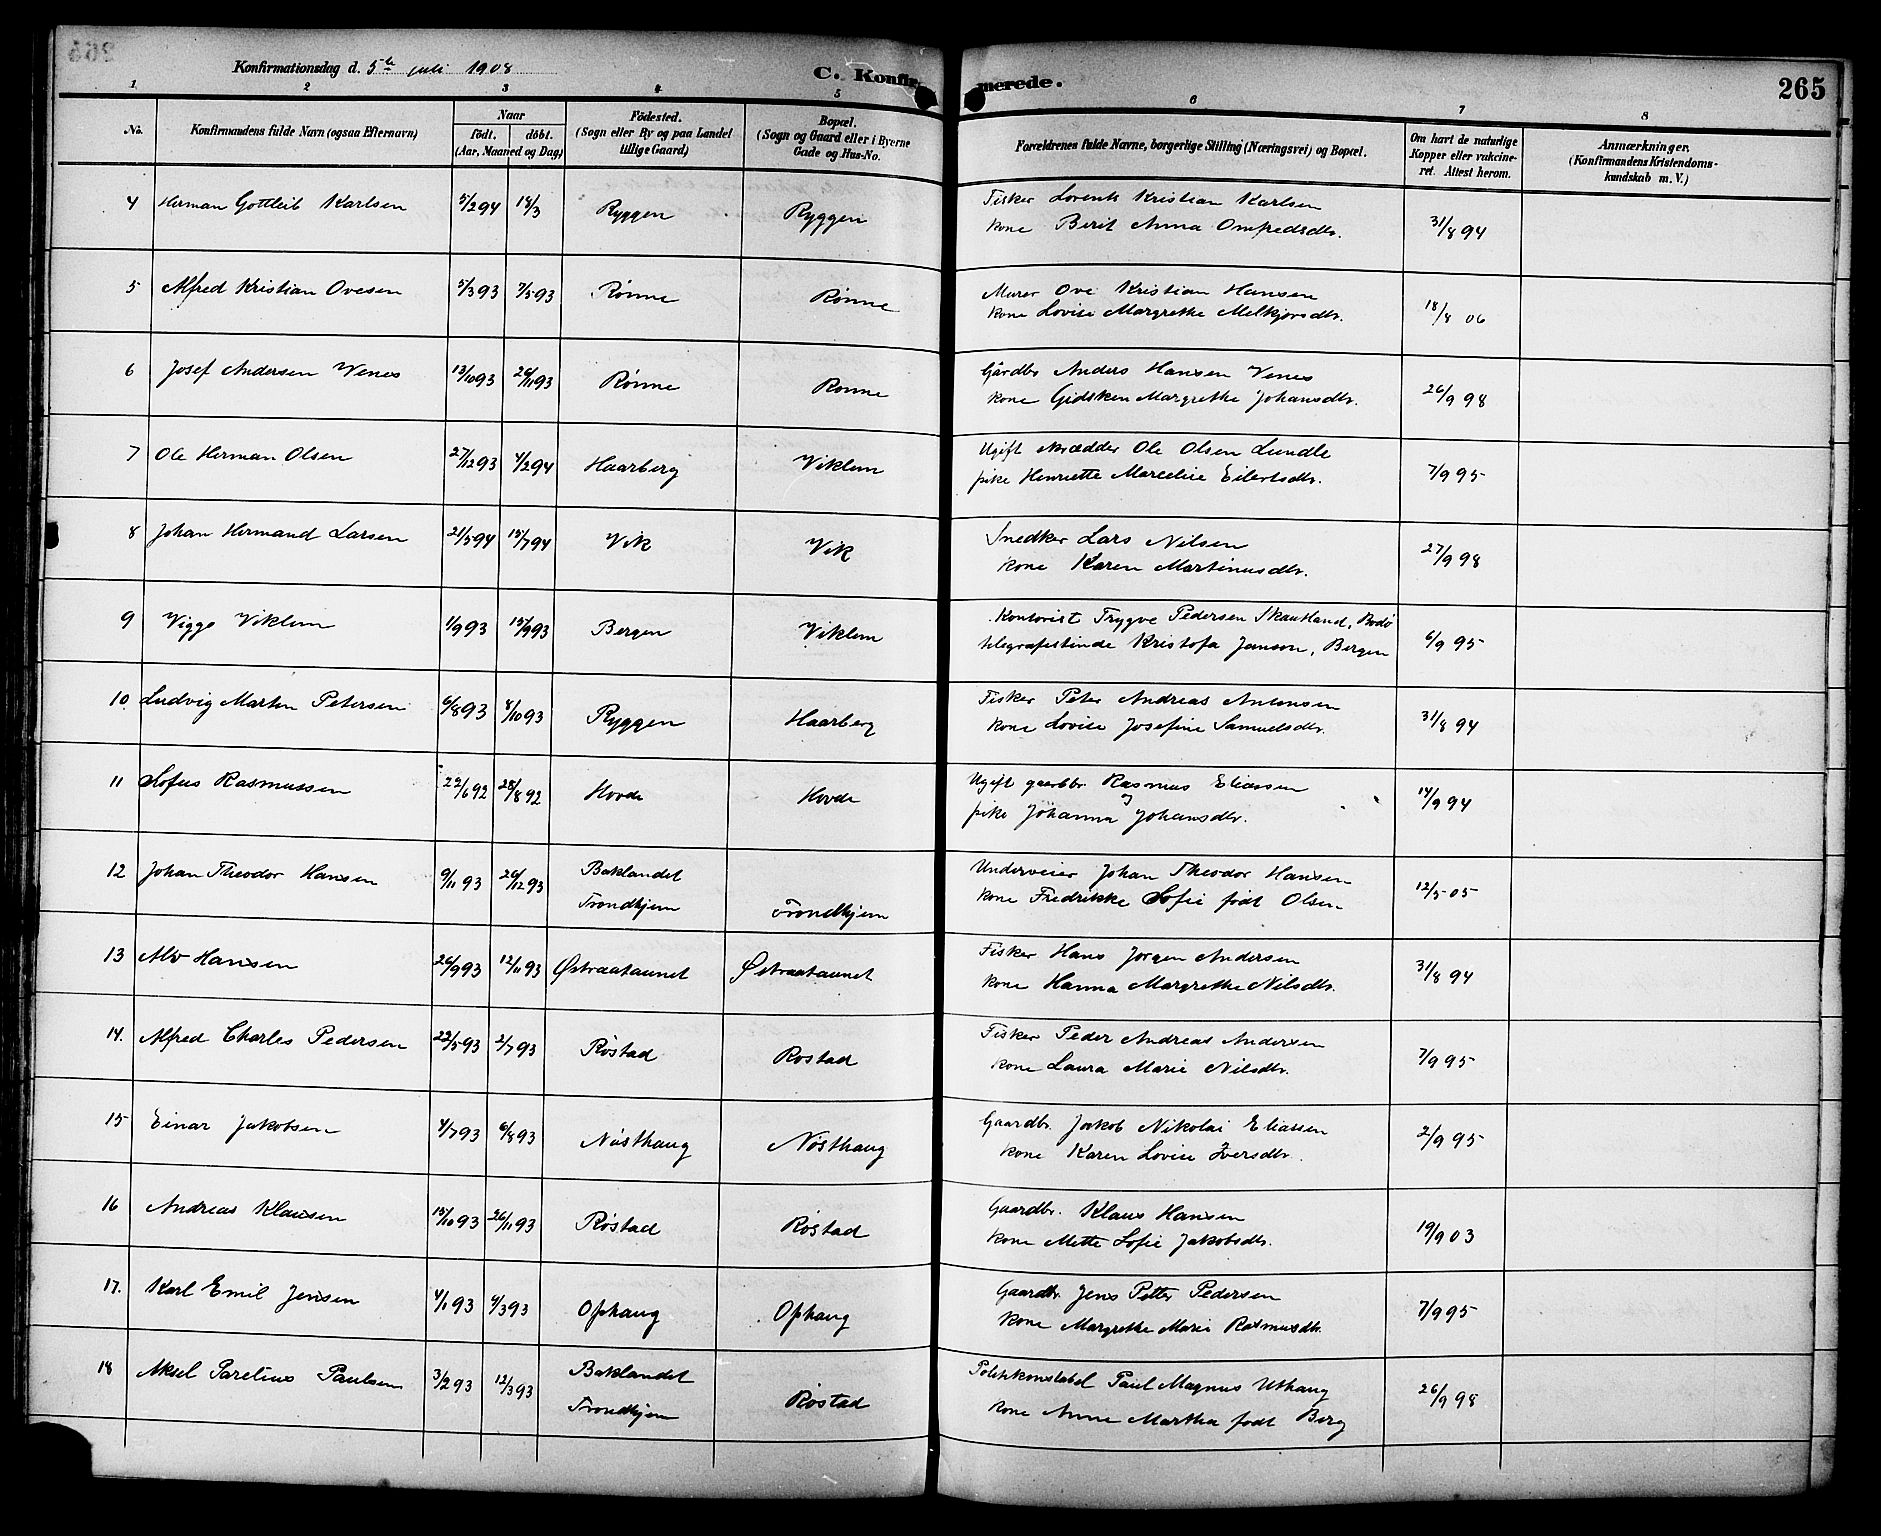 Konfirmationsdag d. 5te juli 1908
C. Konfirmerede.
265
1 2 3 4 5 6 7 8
No.
Konfirmandens fulde Navn (ogsaa Efternavn)
Naar
födt. döbt.
(Aar, Maaned og Dag)
Födested.
(Sogn eller By og paa Landet
tillige Gaard)
Bopæl.
(Sogn og Gaard eller i Byerne
Gade og Hus-No.
Forældrenes fulde Navne, borgerlige Stilling (Næringsvei) og Bopæl.
Om havt de naturlige
Kopper eller vakcine-
ret. Attest herom.
Anmærkninger.
(Konfirmandens Kristendoms-
kundskab m. V.)
4 Herman Gottleib Karlsen 5/2 94 18/3 Ryggen Ryggen Fisker Lorents Kristian Karlsen
kone Berit Anna Omfredsdtr. 31/8 94
5 Alfred Kristian Ovesen 5/3 93 7/5 93 Rønne Rønne Murer Ove Kristian Hansen
kone Lovise Margrethe Melkjorsdtr. 18/8 06
6 Josef Andersen Venes 13/10 93 26/11 93 Rønne Rønne Gårdbr Anders Hansen Venes
kone Gidsken Margrethe Johansdtr. 26/9 98
7 Ole Herman Olsen 27/12 93 4/2 94 Haarberg Viklem Ugift skrædder Ole Olsen Lundle
pike Henriette Marcelie Eilertsdtr. 7/9 95
8 Johan Hermand Larsen 21/5 94 15/7 94 Vik Vik Snedker Lars Nilsen
kone Karen Martinusdtr. 27/9 98
9 Viggo Viklem 1/9 93 15/9 93 Bergen Viklem Kontorist Trygve Pedersen Skautland, Bodø
telegrafistinde Kristofa Janson, Bergen 6/9 95
10 Ludvig Martin Petersen 6/8 93 8/10 93 Ryggen Haarberg Fisker Peter Andreas Antonsen
kone Lovise Josefine Samuelsdtr. 31/8 94
11 Sofus Rasmussen 22/6 92 28/8 92 Hovde Hovde Ugift gaardbr. Rasmus Eliassen
og
pike Johanna Johansdtr. 14/9 94
12 Johan Theodor Hansen 9/11 93 26/12 93 Baklandet
Trondhjem Trondhjem Underveier Johan Theodor Hansen
kone Fredrikke Sofie født Olsen 12/5 05
13 Alv Hansen 26/9 93 12/11 93 Østraataunet Østraataunet Fisker Hans Jørgen Andersen
kone Hanna Margrethe Nilsdtr. 31/8 94
14. Alfred Charles Pedersen 22/5 93 2/7 93 Røstad Røstad Fisker Peder Andreas Andersen
kone Laura Marie Nilsdtr. 7/9 95
15 Einar Jakobsen 4/7 93 6/8 93 Nøsthaug Nøsthaug Gaardbr. Jakob Nikolai Eliassen
kone Karen Lovise Iversdtr. 2/9 95
16 Andreas Klausen 15/10 93 26/11 93 Røstad Røstad Gaardbr. Klaus Hansen
kone Mette Sofie Jakobsdtr. 19/9 03
17. Karl Emil Jensen 4/1 93 4/3 93 Ophaug Ophaug Gaardbr. Jens Petter Pedersen
kone Margrethe Marie Rasmusdtr. 7/9 95
18 Aksel Parelius Paulsen 3/2 93 12/3 93 Baklandet
Trondhjem Røstad Politikonstabel Paul Magnus Uthaug
kone Anne Martha født Berg 26/9 98